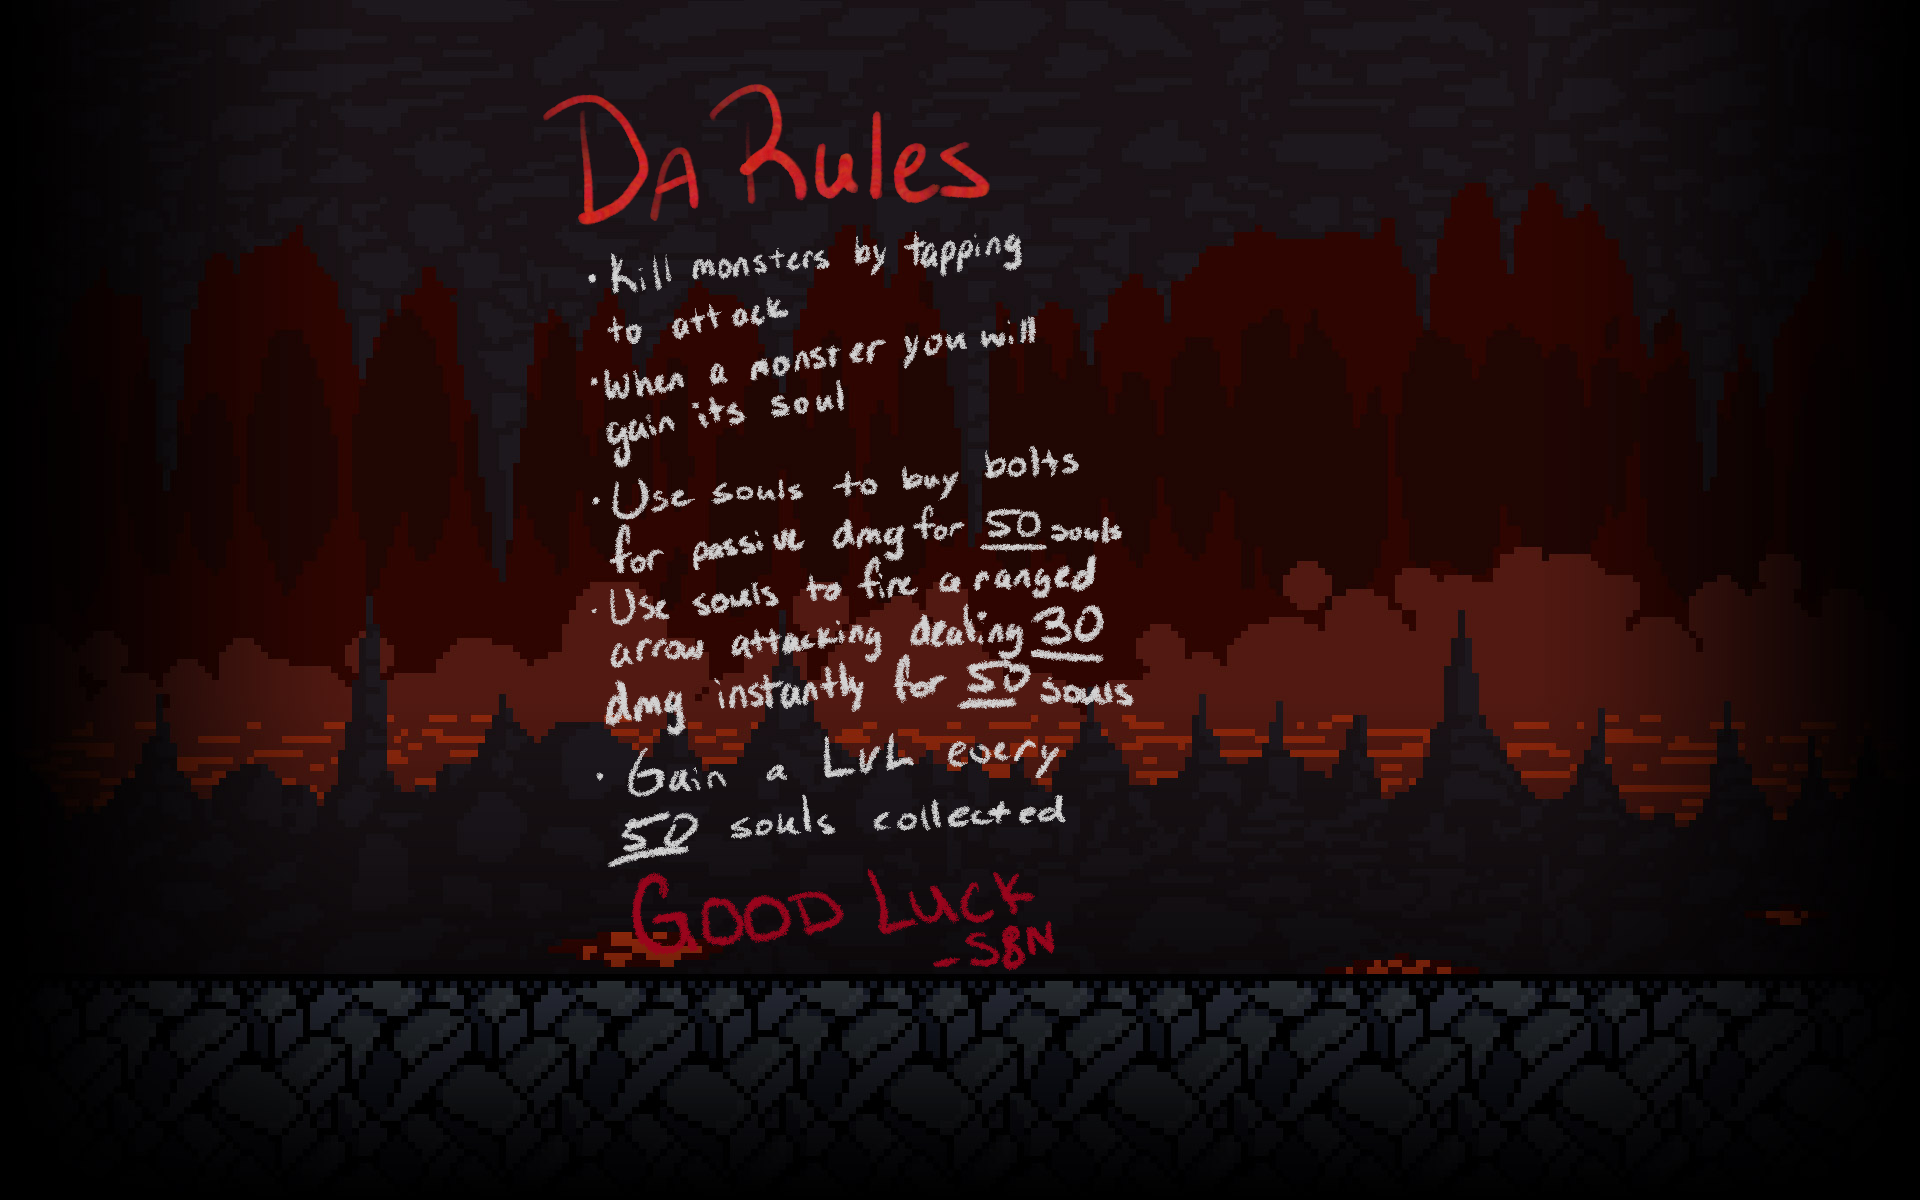 Da Rules
• Kill monsters by tapping
to attack
• When a monster you will
gain its soul
• Use souls to buy bolts
for passive dmg for 50 souls
• Use souls to fire a ranged
arrow attacking dealing 30
dmg instantly for 50 souls
• Gain a LvL every
50 souls collected
GOOD LUCK
- SBN